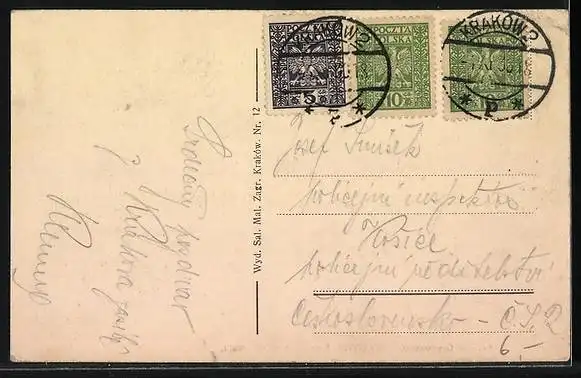 POCZTA
POLSKA
5
POCZTA
POLSKA
10
KRAKÓW 2
KRAKÓW 2
Wyd. Sal. Mal. Zagr. Kraków. Nr. 12
Srdečný pozdrav
z Krakova
Josef
policejní inspektor
Košice
policejní ředitelství
Československo - Č.S.R
6,-